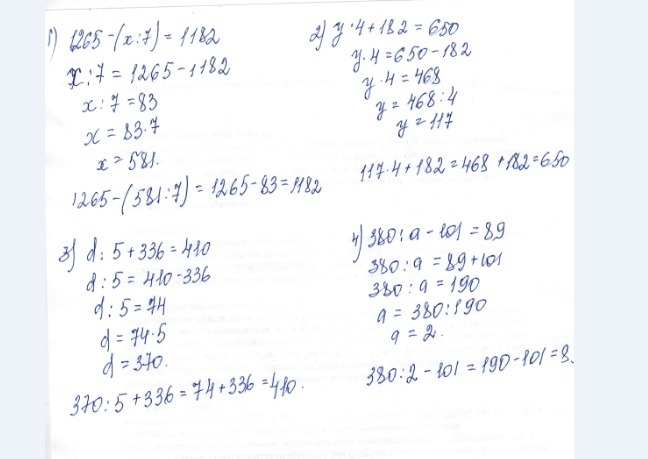 1) 1265-(x:7)=1182
x:7=1265-1182
x:7=83
x=83·7
x=581.
1265-(581:7)=1265-83=1182
2) y·4+182=650
y·4=650-182
y·4=468
y=468:4
y=117
117·4+182=468+182=650
3) d:5+336=410
d:5=410-336
d:5=74
d=74·5
d=370.
370:5+336=74+336=410.
4) 380:a-101=89
380:a=89+101
380:a=190
a=380:190
a=2.
380:2-101=190-101=8